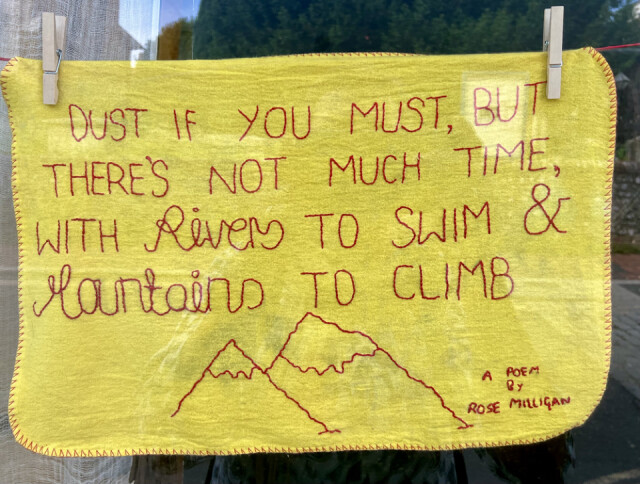 DUST IF YOU MUST, BUT
THERE'S NOT MUCH TIME,
WITH Rivers TO SWIM &
Mountains TO CLIMB
A POEM
BY
ROSE MILLIGAN